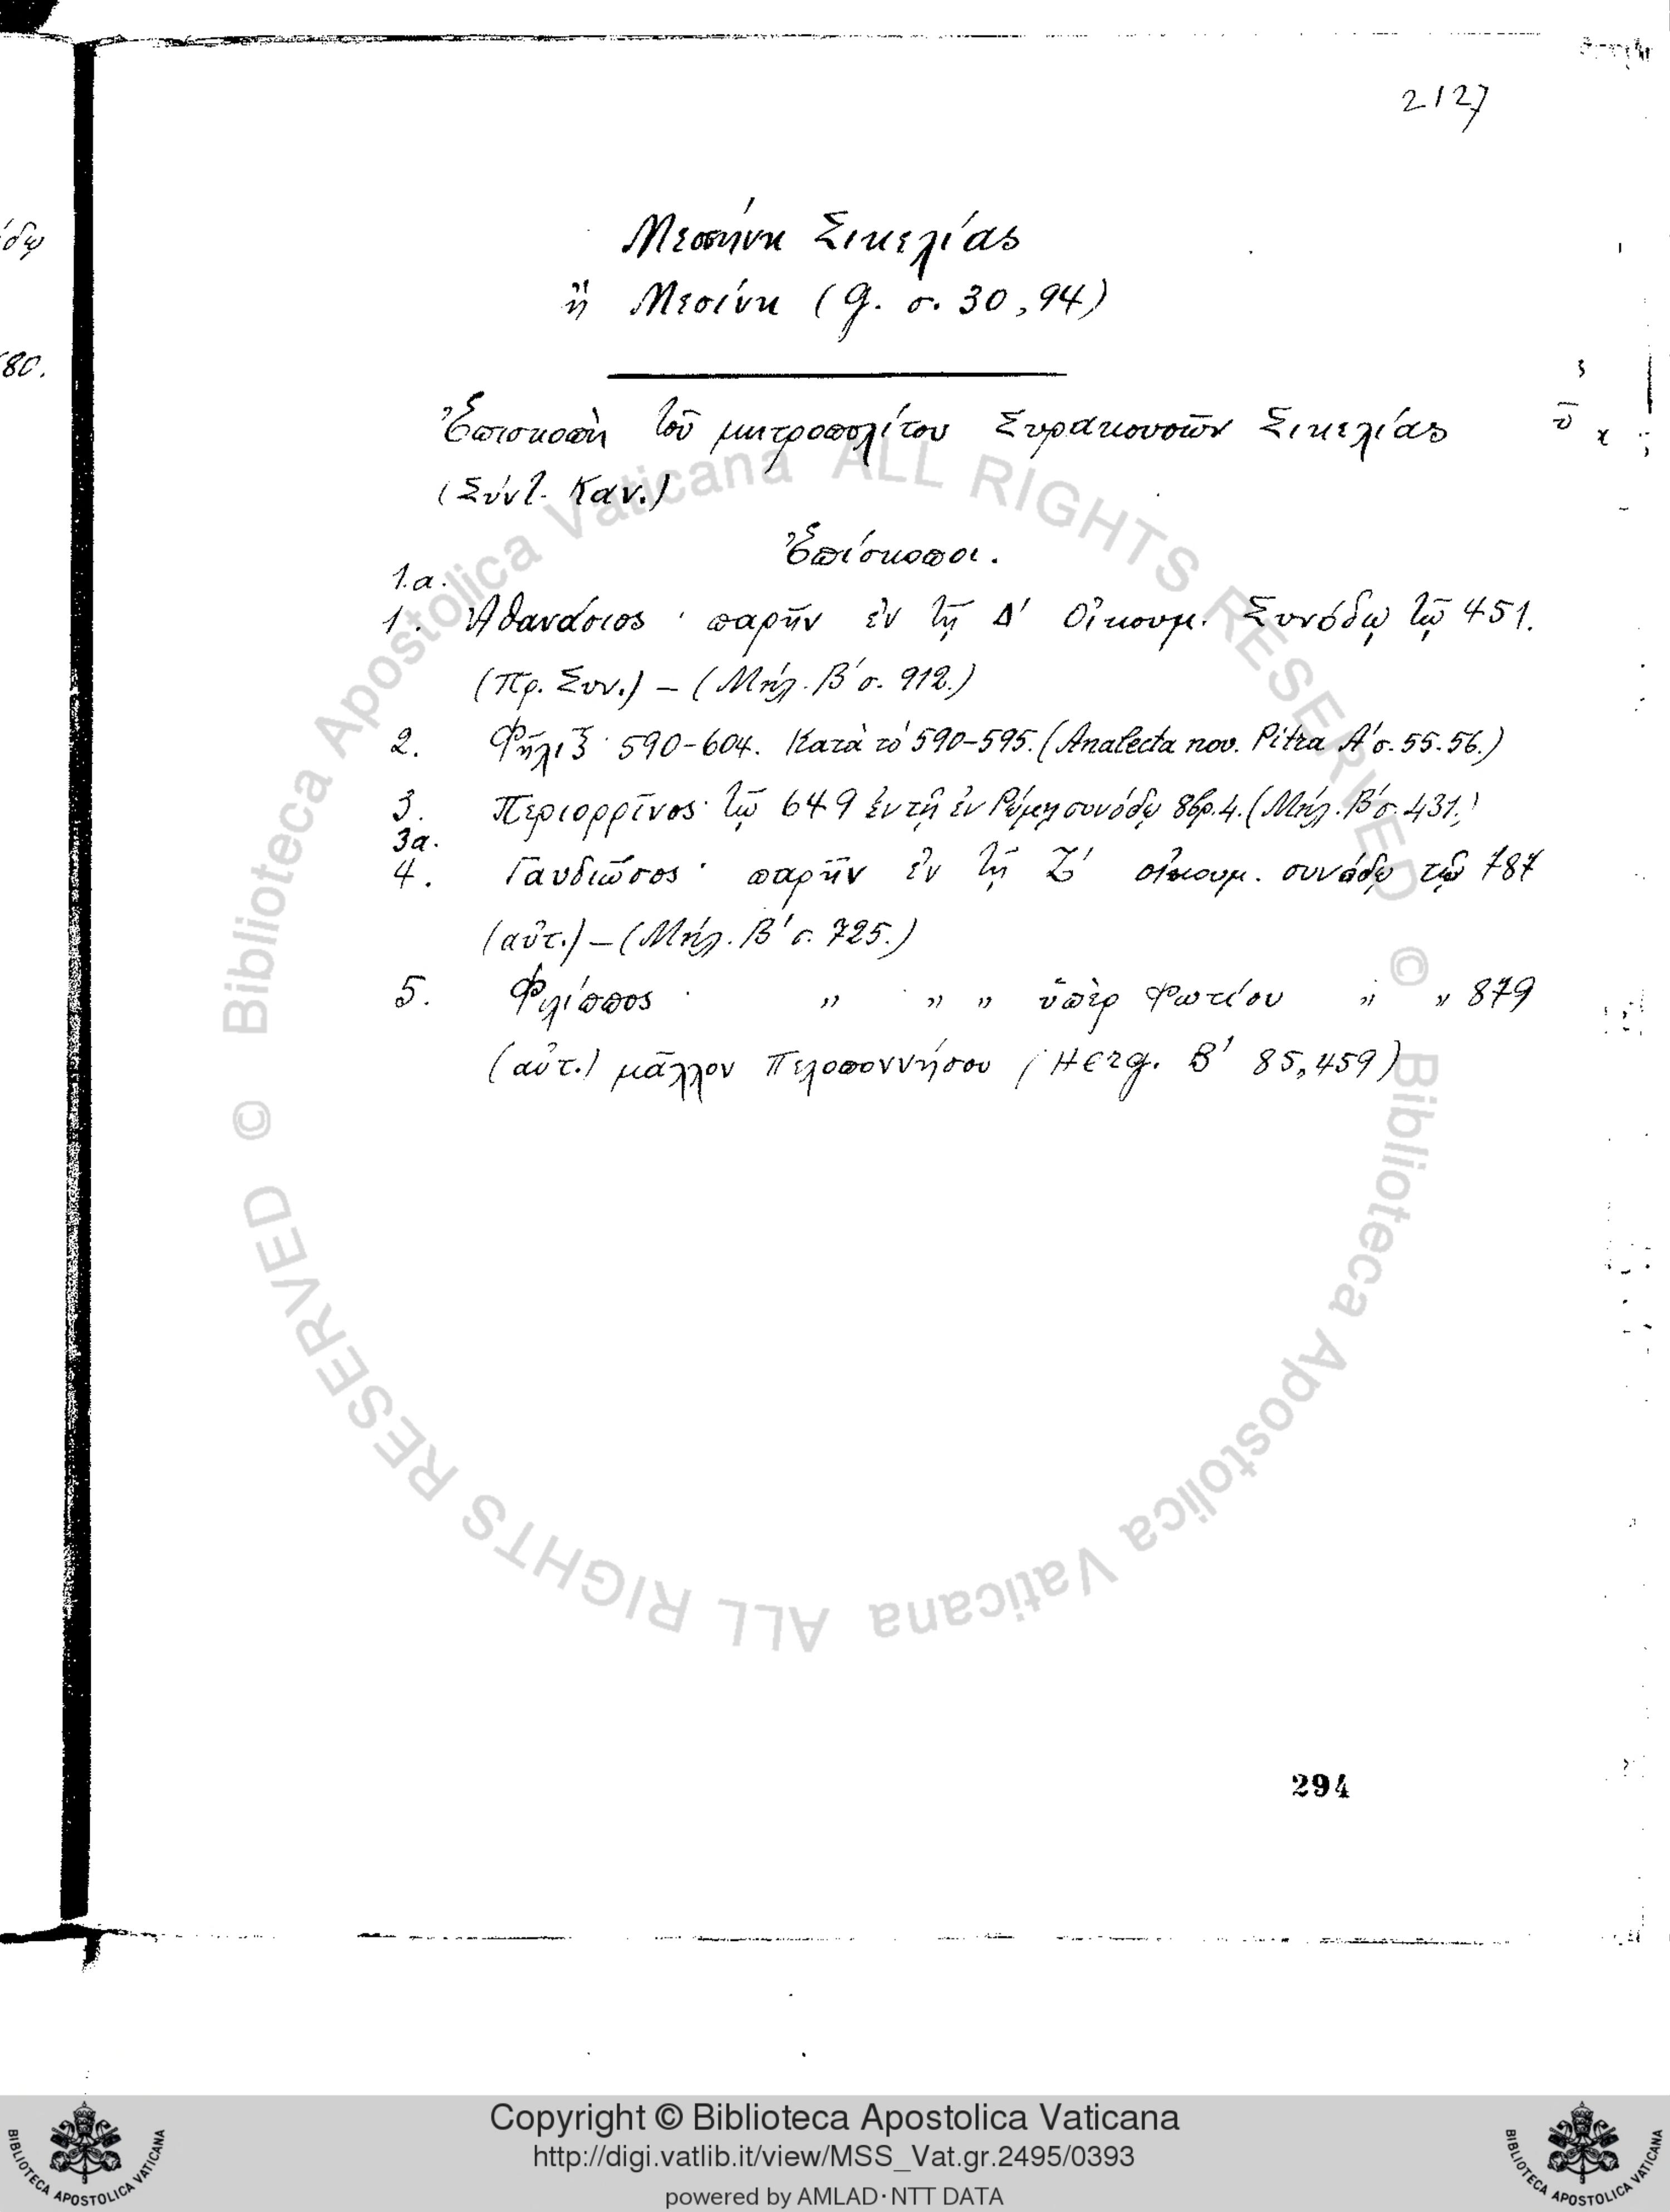 2127
Μεσσήνη Σικελίας
ἢ Μεσίνη (g. σ. 30, 94)
Ἐπισκοπὴ τοῦ μητροπολίτου Συρακουσῶν Σικελίας
(Σύντ. Καν.)
Ἐπίσκοποι.
1.α.
1. Ἀθανάσιος · παρῆν ἐν τῇ Δ' Οἰκουμ. Συνόδῳ τῷ 451.
(Πρ. Συν.) – (Μήλ. Β' σ. 912.)
2. Φῆλιξ · 590-604. Κατὰ τὸ 590-595. (Analecta nov. Pitra Α' σ. 55. 56.)
3. Περιορρῖνος · τῷ 649 ἐν τῇ ἐν Ρώμῃ συνόδῳ 8βρ. 4. (Μήλ. Β' σ. 431.)
3α.
4. Γαυδιῶσος · παρῆν ἐν τῇ Ζ' οἰκουμ. συνόδῳ τῷ 787
(αὐτ.) – (Μήλ. Β' σ. 725.)
5. Φιλίππος · " " " ὑπὲρ Φωτίου " " 879
(αὐτ.) μᾶλλον Πελοποννήσου (Herg. Β' 85, 459)
294
© Biblioteca Apostolica Vaticana ALL RIGHTS RESERVED © Biblioteca Apostolica Vaticana ALL RIGHTS RESERVED
Copyright © Biblioteca Apostolica Vaticana
http://digi.vatlib.it/view/MSS_Vat.gr.2495/0393
powered by AMLAD·NTT DATA
BIBLIOTECA APOSTOLICA VATICANA
BIBLIOTECA APOSTOLICA VATICANA